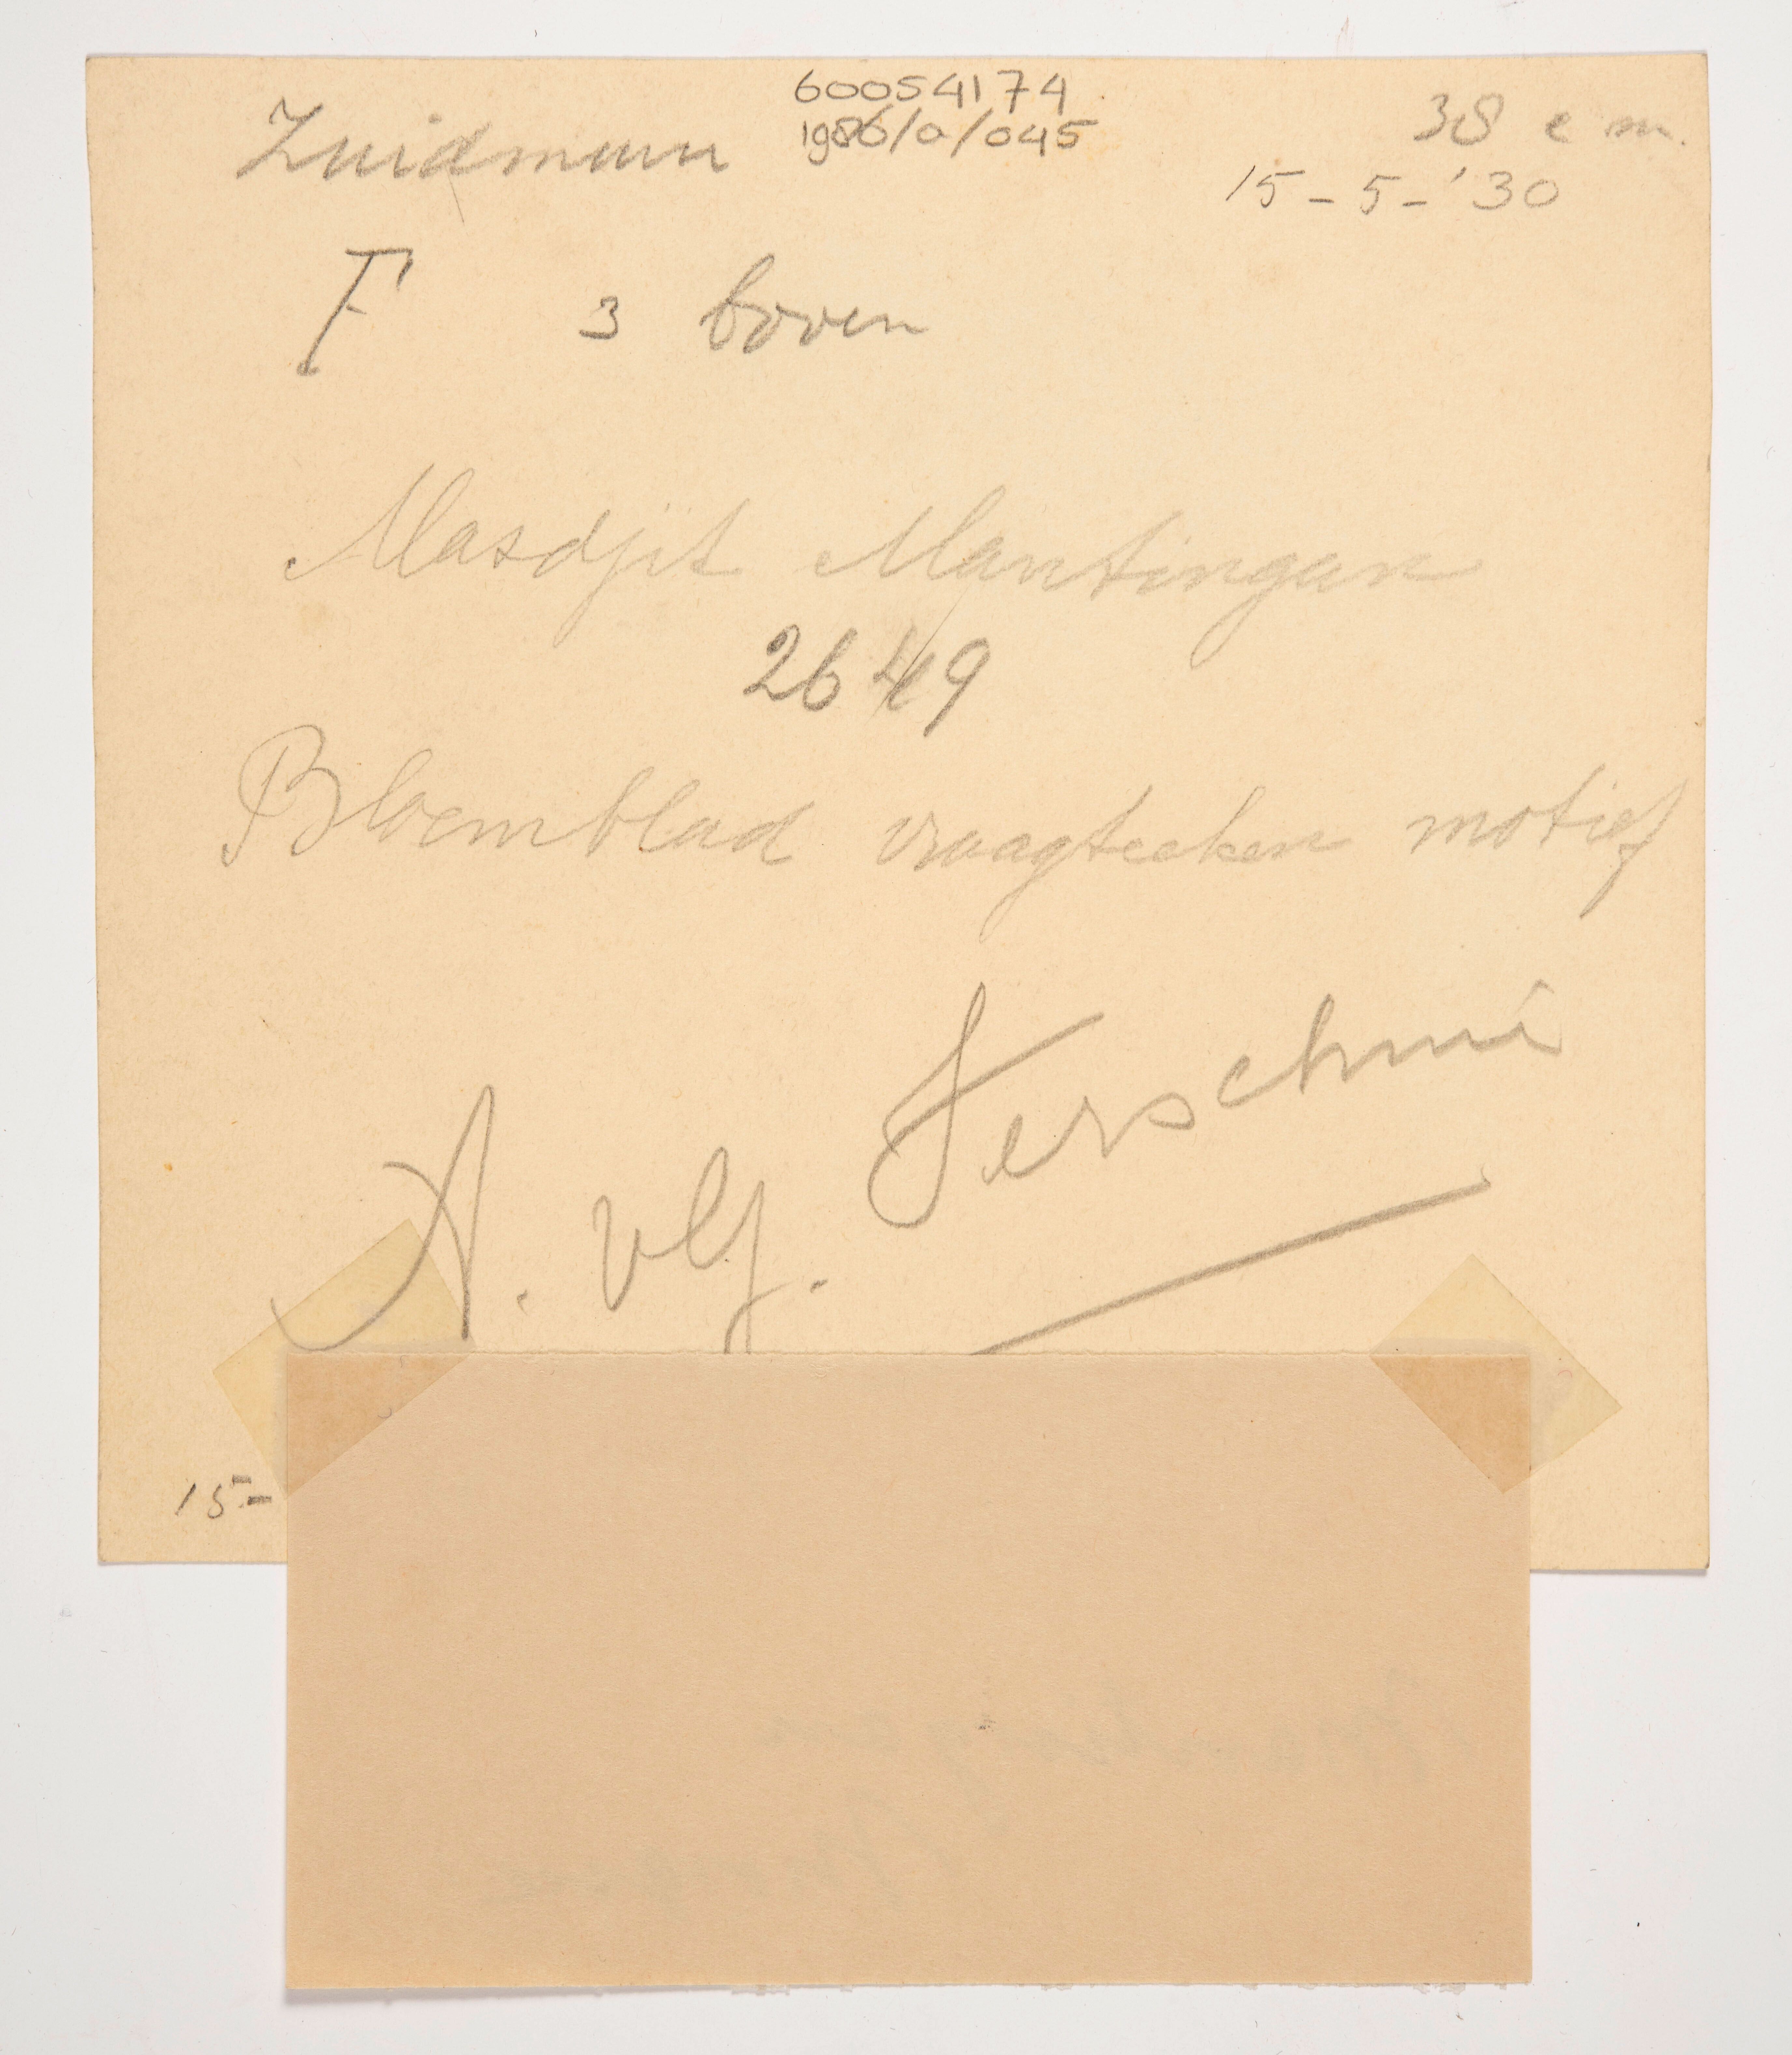 60054174
Zuidmuur 1986/a/045 38 c m.
15-5-'30
F 3 boven
Masdjit Mantingan
2649
Bloemblad vraagteeken motief
A. vlg.
15-